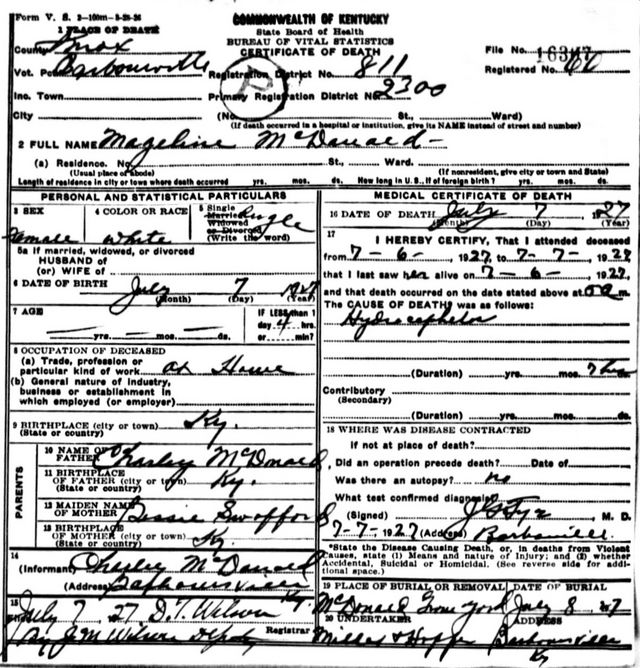 Form V. S. 2-100m-5-28-26
COMMONWEALTH OF KENTUCKY
State Board of Health
BUREAU OF VITAL STATISTICS
CERTIFICATE OF DEATH
1 PLACE OF DEATH
County Knox
File No.
Vot. Pct. Barbourville Registration District No. 811
Registered No. 60
Inc. Town Primary Registration District No. 2300
City (No. St., Ward)
(If death occurred in a hospital or institution, give its NAME instead of street and number)
2 FULL NAME Mageline McDonald
(a) Residence. No. St., Ward.
(Usual place of abode) (If nonresident, give city or town and State)
Length of residence in city or town where death occurred yrs. mos. ds. How long in U. S., if of foreign birth? yrs. mos. ds.
PERSONAL AND STATISTICAL PARTICULARS
3 SEX Female
4 COLOR OR RACE White
5 Single Married Widowed or Divorced (Write the word) Single
5a If married, widowed, or divorced
HUSBAND of
(or) WIFE of
6 DATE OF BIRTH July 7 1927
(Month) (Day) (Year)
7 AGE yrs. mos. ds.
IF LESS than 1
day 4 hrs.
or min?
8 OCCUPATION OF DECEASED
(a) Trade, profession or
particular kind of work at Home
(b) General nature of industry,
business or establishment in
which employed (or employer)
9 BIRTHPLACE (city or town) Ky.
(State or country)
PARENTS
10 NAME OF
FATHER Charley McDonald
11 BIRTHPLACE
OF FATHER (city or town) Ky.
(State or country)
12 MAIDEN NAME
OF MOTHER Bessie Swofford
13 BIRTHPLACE
OF MOTHER (city or town) Ky
(State or country)
14
(Informant) Charley McDonald
(Address) Barbourville Ky.
15 July 7, 27 D.T. Wilson
By J M Wilson Deputy Registrar
MEDICAL CERTIFICATE OF DEATH
16 DATE OF DEATH July 7 1927
(Month) (Day) (Year)
17
I HEREBY CERTIFY, That I attended deceased
from 7-6-1927 to 7-7-1927
that I last saw her alive on 7-6-1927,
and that death occurred on the date stated above at m.
The CAUSE OF DEATH was as follows:
Hydrocephelos
(Duration) yrs. mos.
Contributory
(Secondary)
(Duration) yrs. mos. ds.
18 WHERE WAS DISEASE CONTRACTED
If not at place of death?
Did an operation precede death? Date of
Was there an autopsy? no
What test confirmed diagnosis?
(Signed) M. D.
7-7-1927 (Address) Barbourville
*State the Disease Causing Death, or, in deaths from Violent
Causes, state (1) Means and nature of Injury; and (2) whether
Accidental, Suicidal or Homicidal. (See reverse side for addi-
tional space.)
19 PLACE OF BURIAL OR REMOVAL DATE OF BURIAL
McDonald Grave Yard July 8 27
20 UNDERTAKER ADDRESS
Miller & Hopper Barbourville
Ky